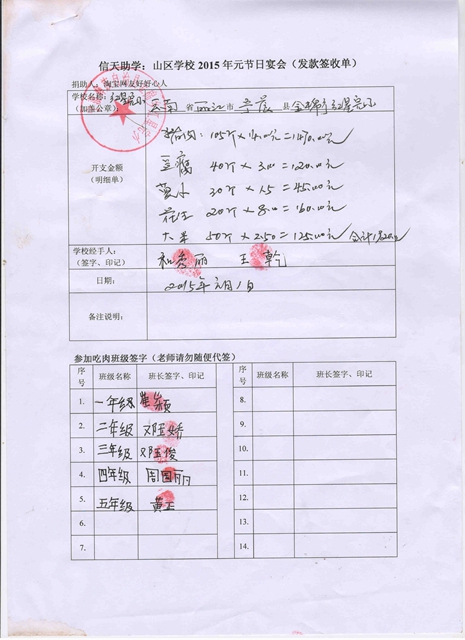 信天助学：山区学校2015年元节日宴会（发款签收单）
捐助人：淘宝网友好好心人
学校名称：
（加盖公章） 云南省丽江市宁蒗县
开支金额
（明细单）
猪肉：105斤×14.00元=1470.00元
豆腐 40斤×3.00=120.00元
30斤×1.5=45.00元
20斤×8.00=160.00元
大米 50斤×2.50=125.00元
学校经手人：
（签字、印记） 丽 王
日期： 2015年元月1日
备注说明：
参加吃肉班级签字（老师请勿随便代签）
序号 班级名称 班长签字、印记 序号 班级名称 班长签字、印记
1. 一年级 8.
2. 二年级 邓 娇 9.
3. 三年级 邓 俊 10.
4. 四年级 周国丽 11.
5. 五年级 黄 12.
6. 13.
7. 14.